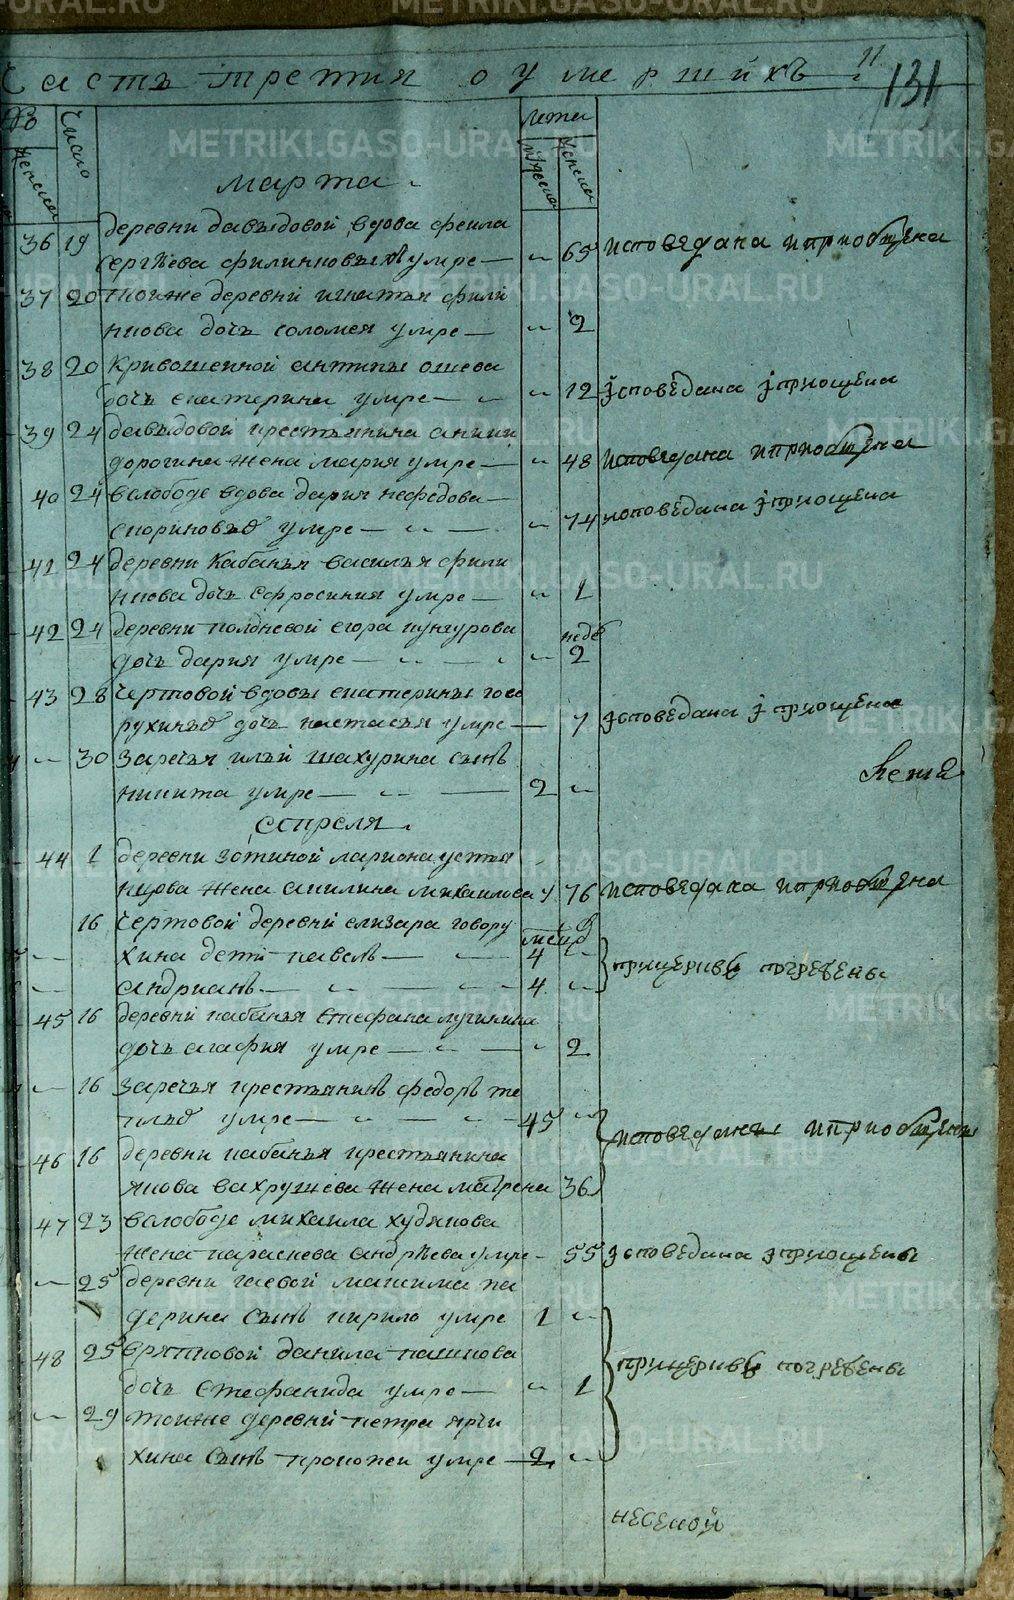 Часть третия о умершихъ
11
131
Число
женска
лета
мужеска
женска
марта
36 19 деревни давыдовой вдова феκла
сергѣева филинковыхъ умре — 65 исповедана и приобщена
37 20 тоиже деревни игнатья фили
нкова дочь соломея умре — 2
38 20 Кривошеиной антипы ошева
дочь екатерина умре — 12 исповедана и приощена
39 24 давыдовой крестьянина аники
дорогина жена мария умре — 48 исповедана и приобщена
40 24 вслободе вдова дария нефедова —
спориновыхъ умре — 74 исповедана и приощена
41 24 деревни Кабанья василья фили
нкова дочь ефросиния умре — 1
42 24 деревни полдневой егора кунгурова недѣ
дочь дария умре — 2
43 28 Чертовой вдовы екатерины гово
рухиныхъ дочь настасья умре — 7 исповедана и приощена
30 Заречья ильи шахурина сынъ
никита умре — 2
апреля
44 1 деревни зотиной лариона устья
нцова жена акилина михаилова у 76 исповедана и приобщена
16 Чертовой деревни елизара говору
хина дети павелъ — 4
андрианъ — 4 прицеркви погребены
45 16 деревни кабанья стефана лучинина
дочь агафия умре — 2
16 Заречья крестьянинъ федоръ те
плыхъ умре — 45 исповеданы и приобщены
46 16 деревни кабанья крестьянина
якова вахрушева жена матрена 36
47 23 вслободе михаила худякова
жена параскева андрѣева умре — 55 исповедана и приощены
25 деревни гаевой максима па
дерина сынъ кирило умре 1
48 25 брятковой данила пашкова
дочь стефанида умре — 1 прицеркви погребены
29 тоиже деревни петра ярчи
хина сынъ прокопеи умре — 2